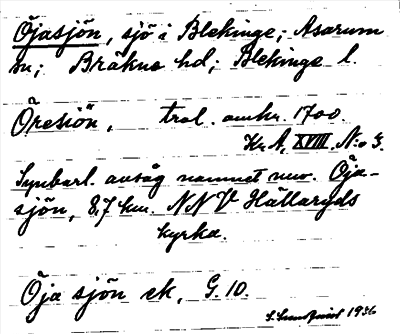 Öjasjön, sjö i Blekinge; Asarum
sn; Bräkne hd; Blekinge l.
Öresiön, trol. omkr. 1700.
Kr A, XVIII. N:o 3.
Synbarl. avsåg namnet nuv. Öja-
sjön, 8,7 km. NNV Hällaryds
kyrka.
Öja sjön ek, G. 10.
1936